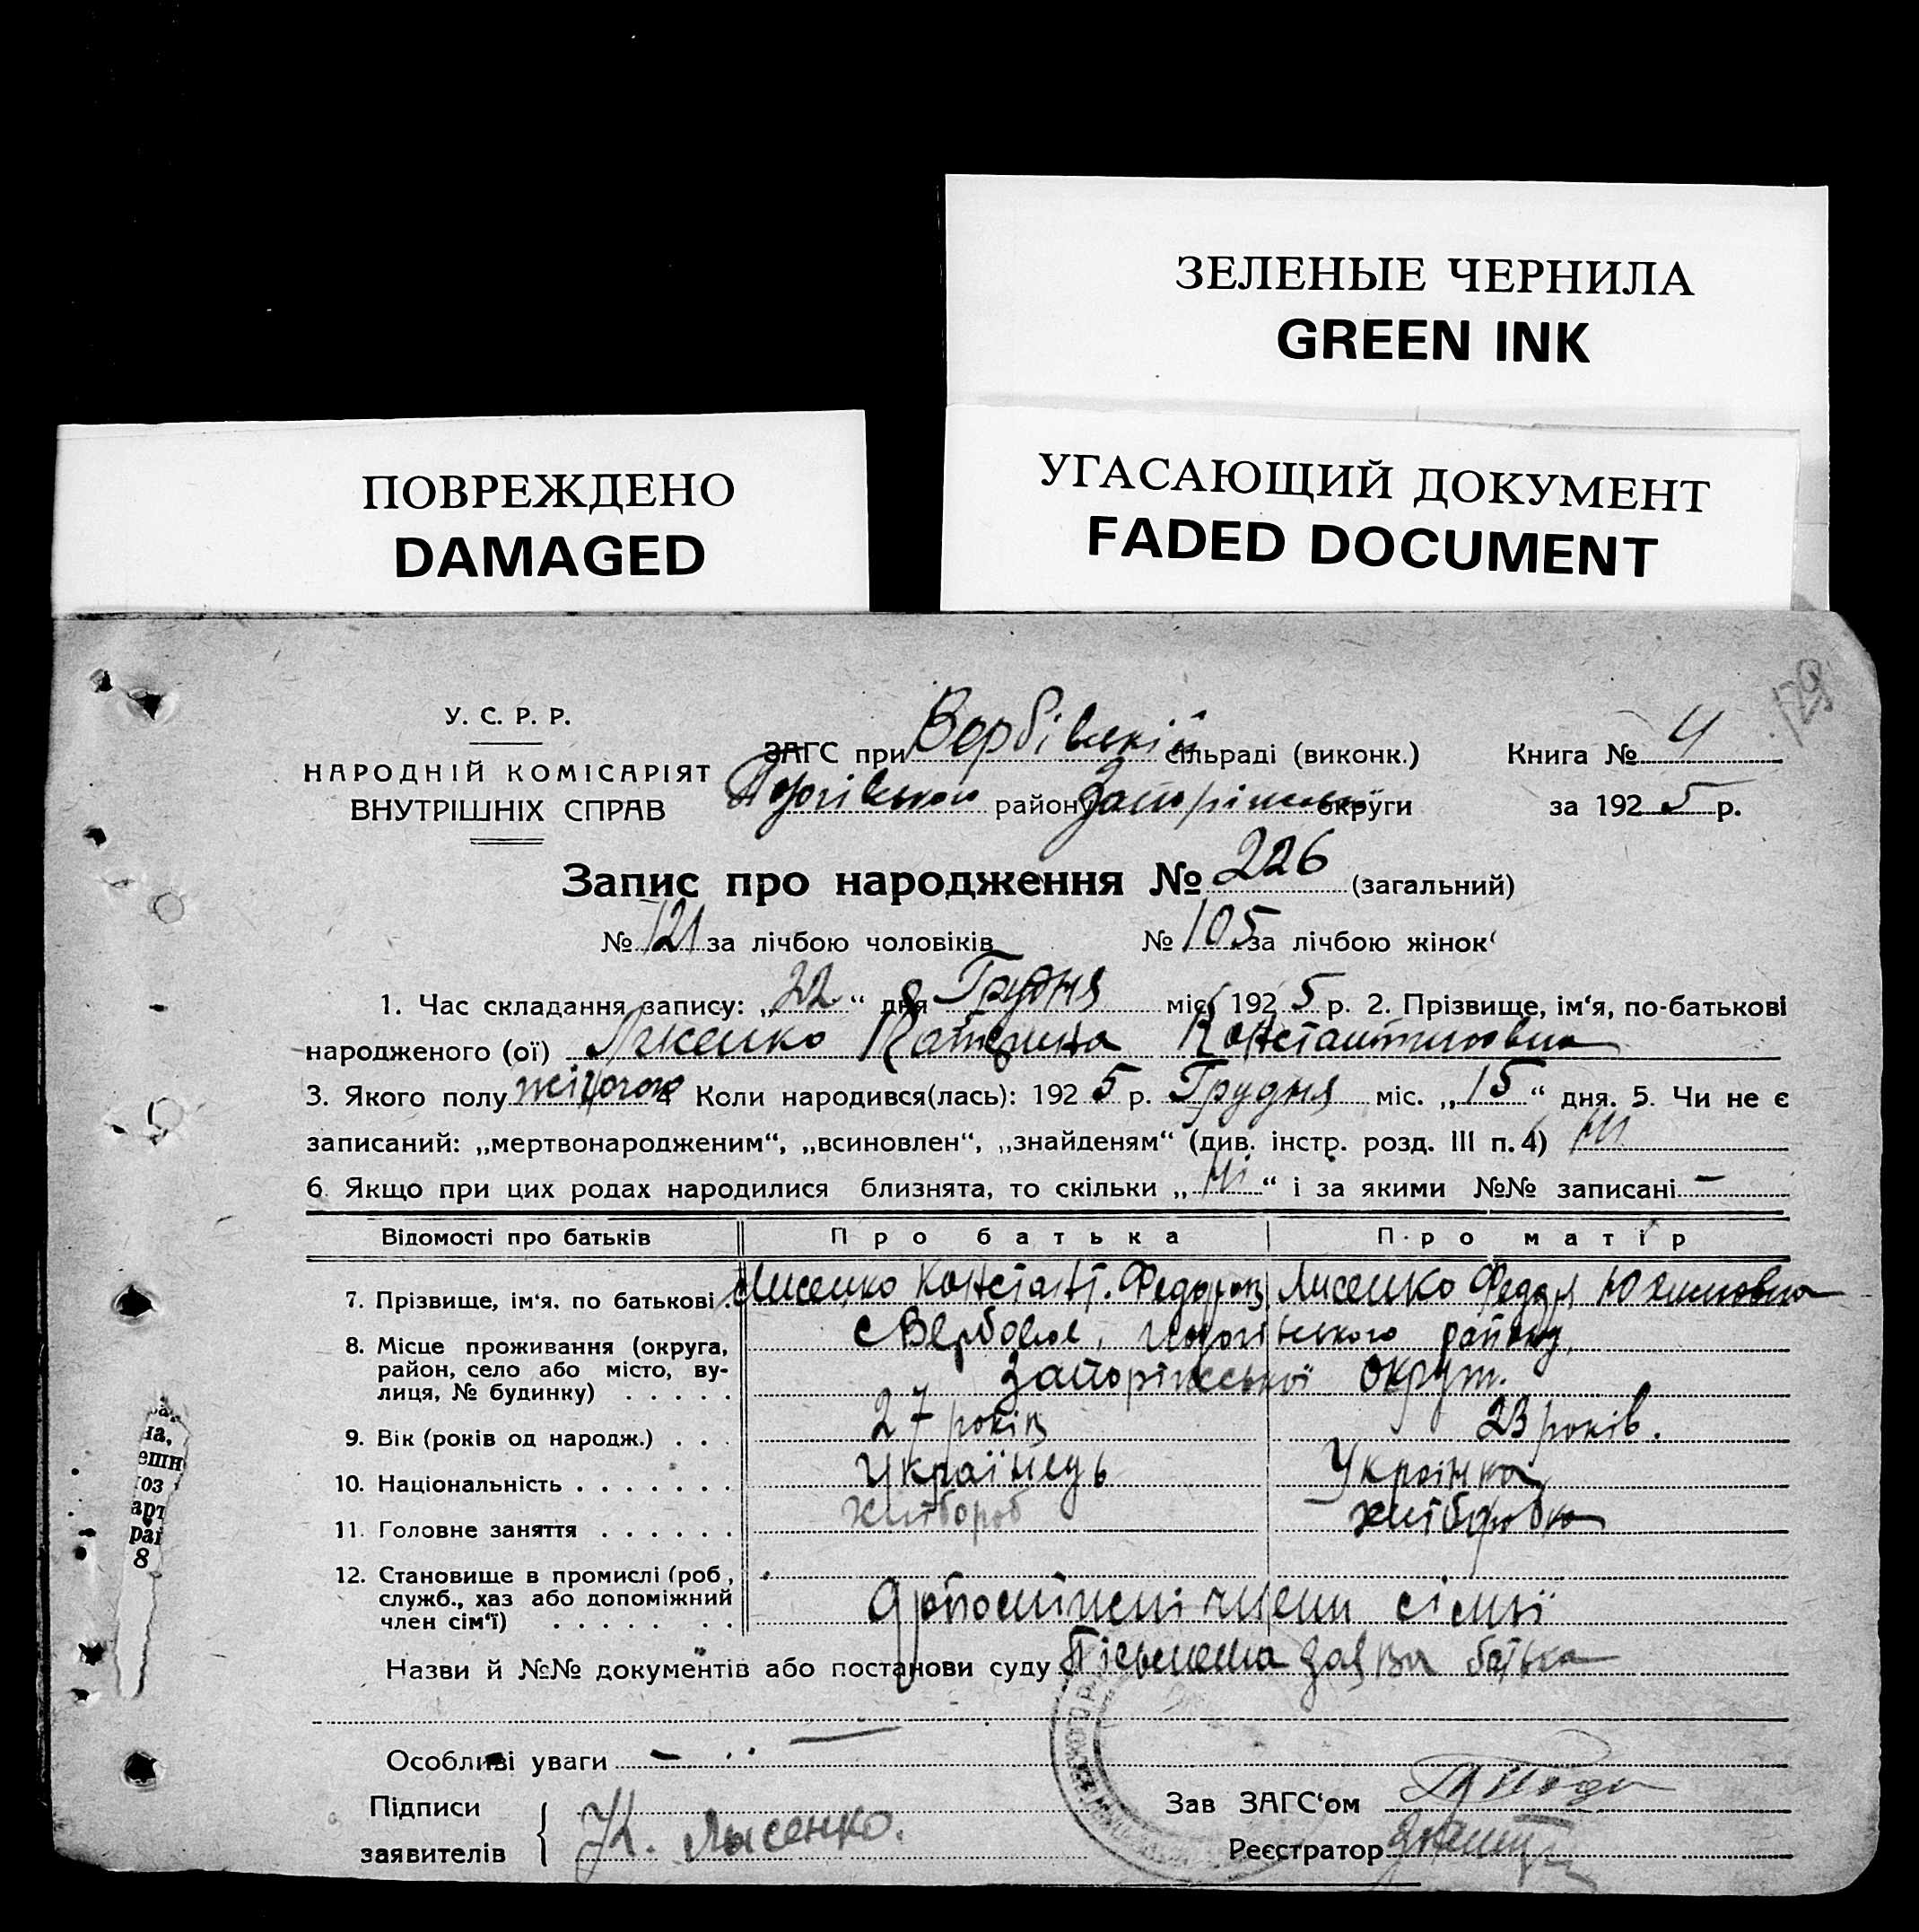 ЗЕЛЕНЫЕ ЧЕРНИЛА
GREEN INK
ПОВРЕЖДЕНО
DAMAGED
УГАСАЮЩИЙ ДОКУМЕНТ
FADED DOCUMENT
129
У. С. Р. Р.
НАРОДНІЙ КОМІСАРІЯТ
ВНУТРІШНІХ СПРАВ
ЗАГС при Вербівській сільраді (виконк.)
району Запоріжської округи
Книга № 4
за 1925 р.
Запис про народження № 226 (загальний)
№ 121 за лічбою чоловіків № 105 за лічбою жінок
1. Час складання запису: „22“ дня Грудня міс. 1925 р. 2. Прізвище, ім‘я, по-батькові
народженого (ої) Лисенко Катерина Константиновна
3. Якого полу жіночого Коли народився(лась): 1925 р. Грудня міс. „15“ дня. 5. Чи не є
записаний: „мертвонародженим“, „всиновлен“, „знайденям“ (див. інстр. розд. III п. 4) Ні
6 Якщо при цих родах народилися близнята, то скільки „Ні“ і за якими №№ записані —
Відомості про батьків Про батька Про матір
7. Прізвище, ім‘я. по батькові . Лисенко Констант. Федоров Лисенко Федора Юхимовна
8. Місце проживання (округа,
район, село або місто, ву-
лиця, № будинку) . . . . .
с Вербове, району,
Запоріжської округи.
9. Вік (років од народж.) . . . 27 років 23 років.
10. Національність . . . . . . . Українець Українка
11. Головне заняття . . . . . . хлібороб хліборобка
12. Становище в промислі (роб,
служб., хаз або допоміжний
член сім‘ї) . . . . . . .
члени сімьї
Назви й №№ документів або постанови суду Письмена заява батька
Особливі уваги —
Підписи
заявителів
К. Лысенко.
Зав ЗАГС‘ом
Реєстратор
на,
ешн
оз
арт
раі
8